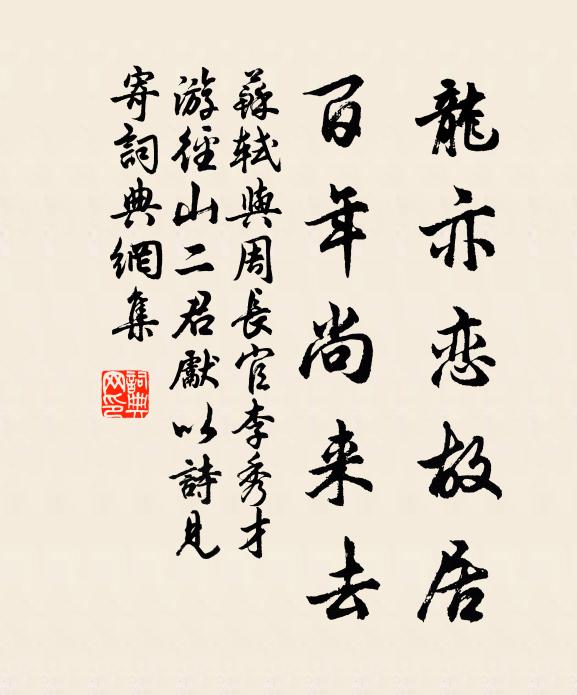 龍亦恋故居
百年尚来去
蘇軾與周長官李秀才
游徑山二君獻以詩見
寄詞典網集
詞典
网印